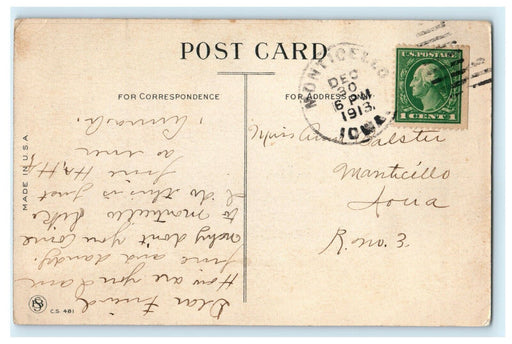 POST CARD
FOR CORRESPONDENCE
FOR ADDRESS
MADE IN U.S.A.
C.S. 481
MONTICELLO
DEC
30
6 PM
1913
IOWA
U.S. POSTAGE
1 CENT 1
Miss
Monticello
Iowa
R. no. 3.
Dear Friend
How are you I am
fine and dandy.
why don't you come
to monticello like
I do this is just
fine Ha, Ha
as ever